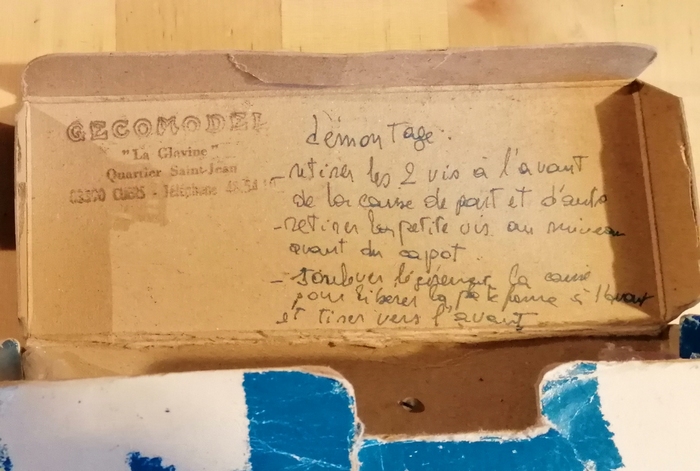 GECOMODEL
"La Glavine"
Quartier Saint-Jean
83390 CUERS - Téléphone 48.54
démontage :
- retirer les 2 vis à l'avant
de la caisse de part et d'autre
- retirer la petite vis au niveau
avant du capot
- soulever légèrement la caisse
pour libérer la plateforme à l'avant
et tirer vers l'avant